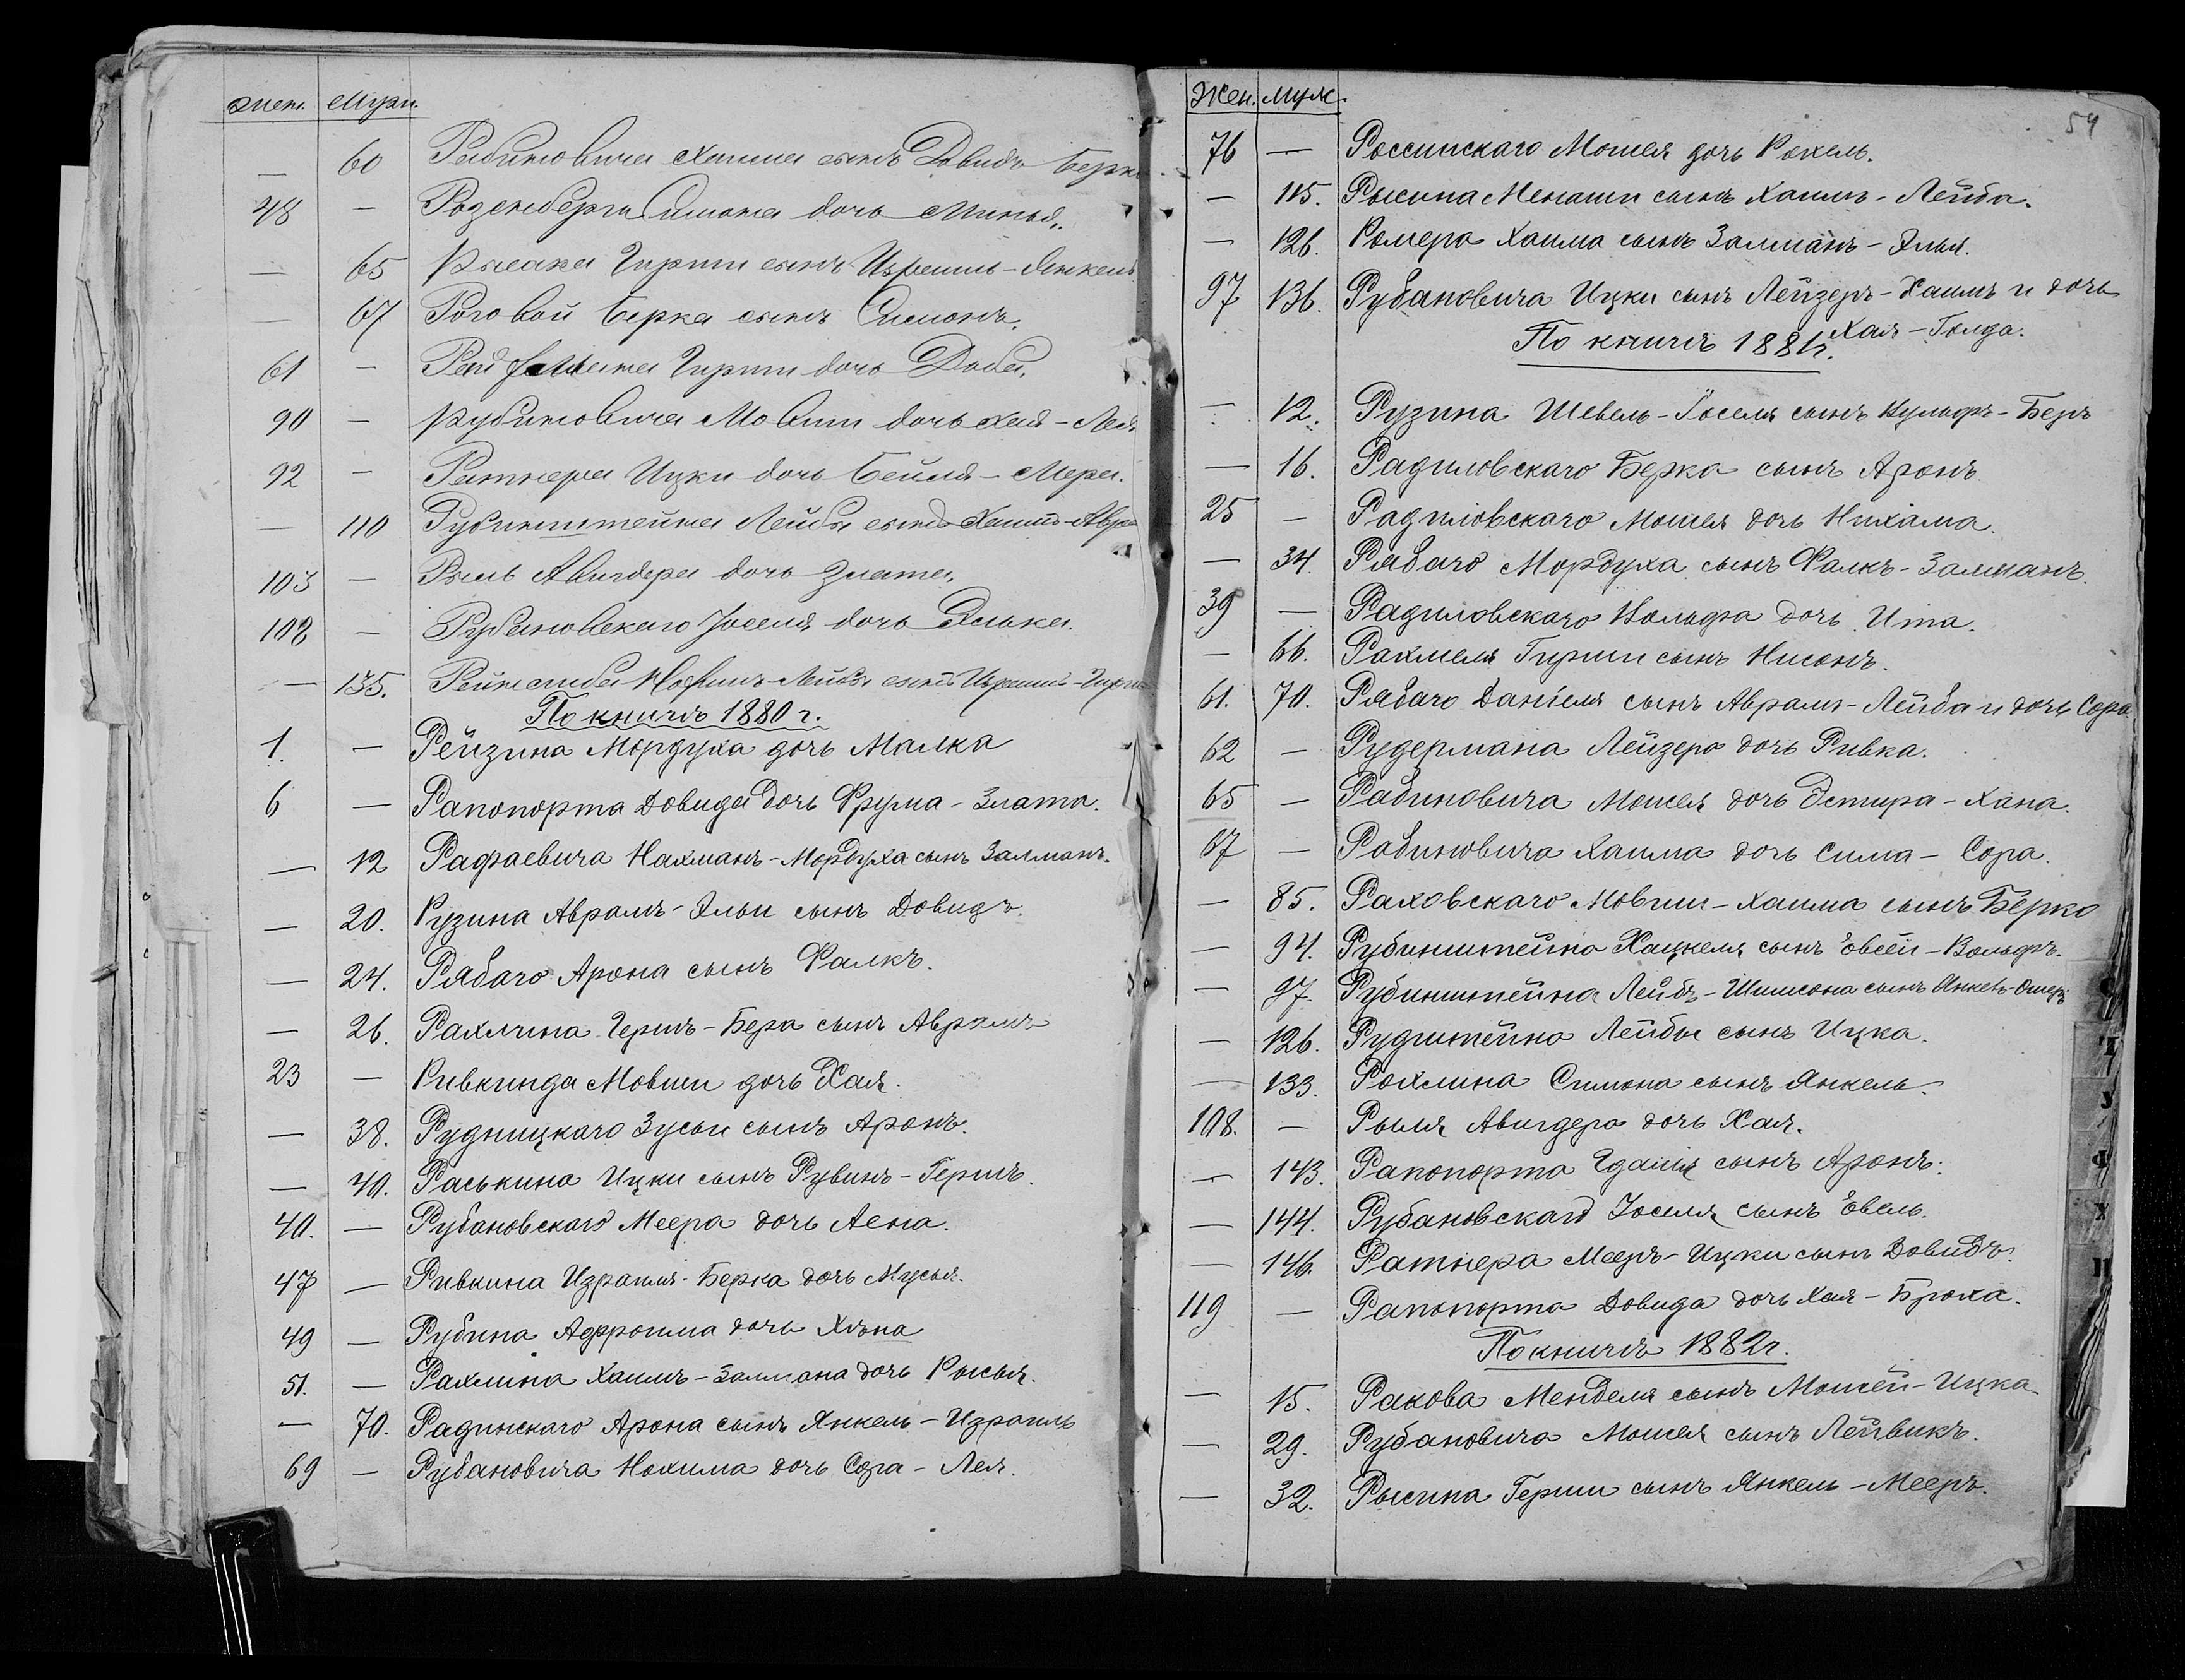 Жен. Муж.
— 60 Рабиновича Хаима сынъ Давидъ Берко
48 — Розенберга Симона дочь Минья.
— 65 Рысака Гирши сынъ Израиль-Янкель
— 67 Роговой Берка сынъ Симонъ.
61 — Гирши дочь Доба.
90 — Рубиновича Мовши дочь Хая-Лея
92 — Ратнера Ицки дочь Бейля-Мера.
— 110 Рубинштейна Лейбы сынъ Хаимъ-Авра
103 — Рыль Авигдера дочь Злата.
108 — Рубановскаго Іоселя дочь Элька.
— 135. Лейбы сынъ Израиль-Гирша
По книгѣ 1880 г.
1. — Рейзина Мордуха дочь Малка
6 — Рапопорта Довида дочь Фрума-Злата.
— 12 Рафаевича Нахманъ-Мордуха сынъ Залманъ.
— 20. Рузина Аврамъ-Эльи сынъ Довидъ
— 24. Рябаго Арона сынъ Фалкъ.
— 26. Рахлина Гершъ-Бера сынъ Аврамъ
23 — Ривкинда Мовши дочь Хая.
— 38. Рудницкаго Зусьи сынъ Аронъ.
— 40. Раськина Ицки сынъ Рувинъ-Гершъ.
40. — Рубановскаго Меера дочь Лена.
47 — Ривкина Израиля-Берка дочь Мусья.
49 — Рубина Афроима дочь Хъна
51. — Рахлина Хаимъ-Залмана дочь Рысья.
— 70. Радинскаго Арона сынъ Янкель-Израиль
69 — Рубановича Нохима дочь Сора-Лея.
Жен. муж. 54
76 — Россинскаго Мошея дочь Рохель.
— 115. Рысина Менаши сынъ Хаимъ-Лейба.
— 126. Ромера Хаима сынъ Залманъ-Элья.
97 136. Рубановича Ицки сынъ Лейзеръ-Хаимъ и дочь
Хая-Голда.
По книгѣ 1881 г.
— 12. Рузина Шевель-Іоселя сынъ Вульфъ-Беръ
— 16. Радиловскаго Берка сынъ Аронъ.
25 — Радиловскаго Мошея дочь Нихама.
— 34. Рябаго Мордуха сынъ Фалкъ-Залманъ.
39 — Радиловскаго Вольфа дочь Ита.
— 66. Рахмеля Гирши сынъ Нисонъ.
61. 70. Рябаго Даніеля сынъ Аврамъ-Лейба и дочь Сора.
62 — Рудермана Лейзера дочь Ривка.
65 — Рабиновича Мошея дочь Эстира-Хана.
67 — Рабиновича Хаима дочь Сима-Сора.
— 85. Раховскаго Мовши-Хаима сынъ Берко
— 94. Рубинштейна Хацкеля сынъ Евсей-Вольфъ.
— 97. Рубинштейна Лейбъ-Шимсона сынъ Янкель-Ошер
— 126. Рудштейна Лейбы сынъ Ицка.
— 133. Рохлина Симона сынъ Янкель.
108. — Рыля Авигдера дочь Хая.
— 143. Рапопорта Гдаліи сынъ Аронъ.
— 144. Рубановскаго Іоселя сынъ Евель.
— 146. Ратнера Мееръ-Ицки сынъ Довидъ.
119 — Рапопорта Довида дочь Хая-Броха.
По книгѣ 1882 г.
— 15. Ракова Менделя сынъ Мошей-Ицка
— 29. Рубановича Мошея сынъ Лейвикъ.
— 32. Рысина Герши сынъ Янкель-Мееръ.
У
Ф
Х
Ц